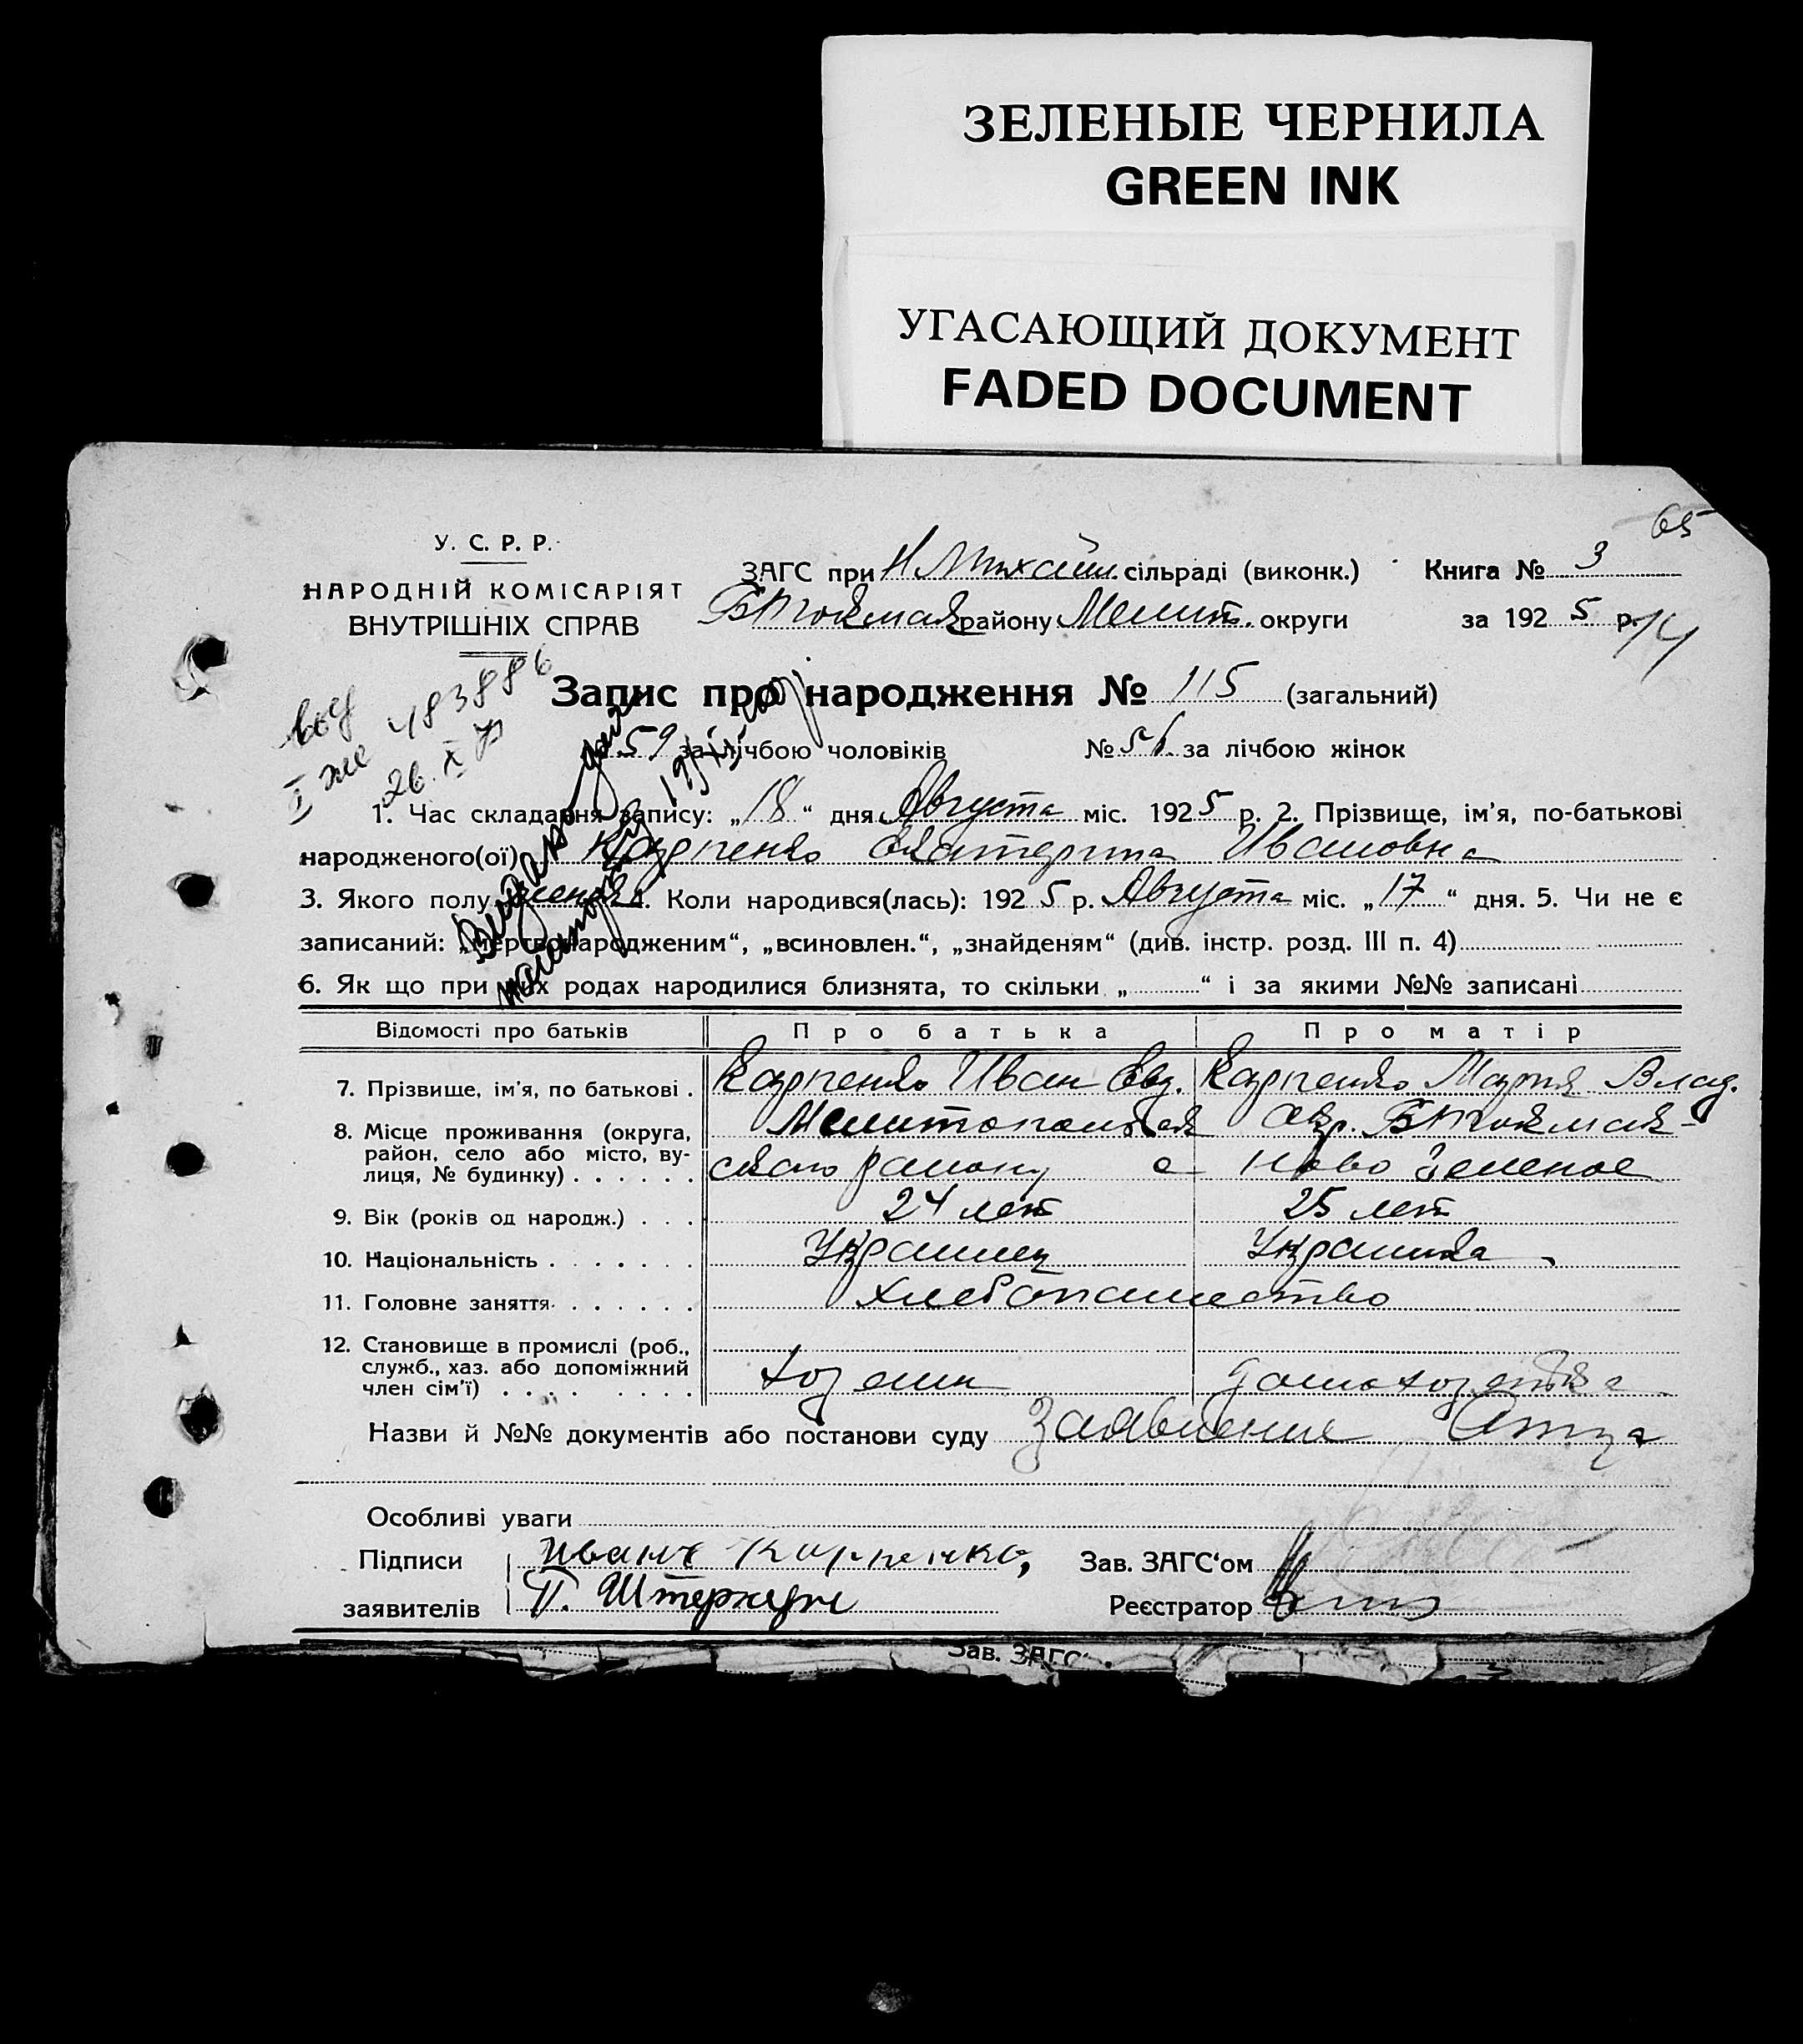 ЗЕЛЕНЫЕ ЧЕРНИЛА
GREEN INK
УГАСАЮЩИЙ ДОКУМЕНТ
FADED DOCUMENT
65
У. С. Р. Р.
НАРОДНІЙ КОМІСАРІЯТ
ВНУТРІШНІХ СПРАВ
ЗАГС при Н Михайл. сільраді (виконк.) Книга № 3
БТокмак району Мелит. округи за 1925 р.
483886
26. X
Запис про народження № 115 (загальний)
59 за лічбою чоловіків № 56 за лічбою жінок
1. Час складання запису: „18“ дня Августа міс. 1925 р. 2. Прізвище, ім'я, по-батькові
народженого(ої) Карпенко Екатерина Ивановна
3. Якого полу женск 4. Коли народився(лась): 1925 р. Августа міс. „17“ дня. 5. Чи не є
записаний: „мертвонародженим“, „всиновлен.“, „знайденям“ (див. інстр. розд. III п. 4)
6. Як що при цих родах народилися близнята, то скільки „ “ і за якими №№ записані
Відомості про батьків Про батька Про матір
7. Прізвище, ім'я, по батькові . Карпенко Иван Евд. Карпенко Мария Влад.
8. Місце проживання (округа, Мелитопольская окр. БТокмак-
район, село або місто, ву-
лиця, № будинку) . . . . . . ского району с Ново Зеленое
9. Вік (років од народж.) . . . 24 лет 25 лет
10. Національність . . . . . . . Украинец Украинка
11. Головне заняття . . . . . . Хлебопашество
12. Становище в промислі (роб.,
служб., хаз. або допоміжний
член сім'ї) . . . . . . . . хозяин домохозяйка
Назви й №№ документів або постанови суду Заявление Отца
Особливі уваги
Підписи Иванъ Карпенко, Зав. ЗАГС‘ом
заявителів П. Реєстратор
Зав. ЗАГС